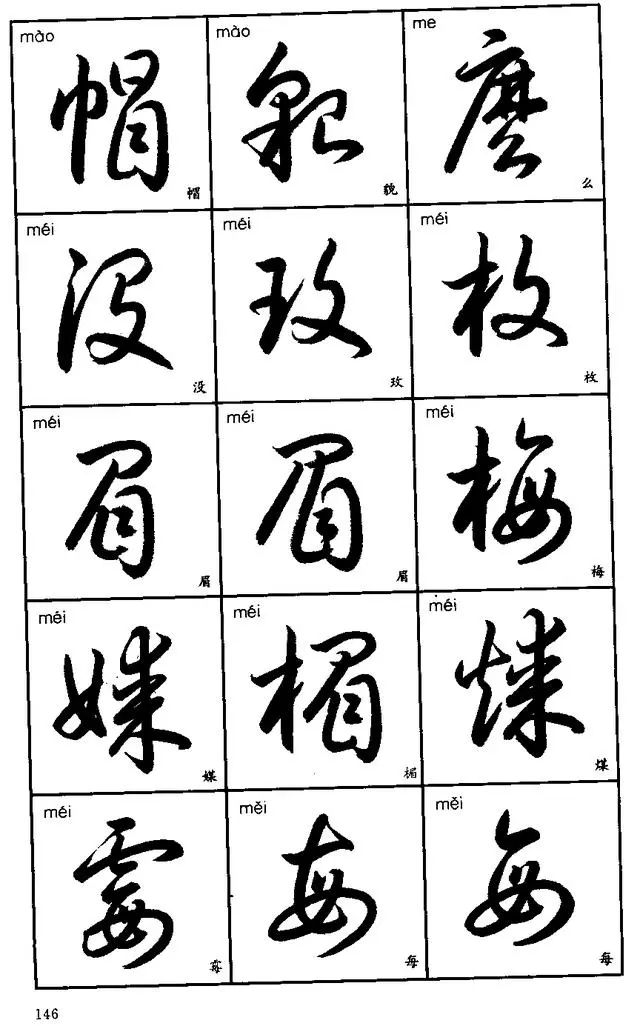 mào mào me
帽 皃 麼
帽 貌 么
méi méi méi
没 玫 枚
没 玫 枚
méi méi méi
眉 眉 梅
眉 眉 梅
méi méi méi
媒 楣 煤
媒 楣 煤
méi měi měi
霉 每 每
霉 每 每
146